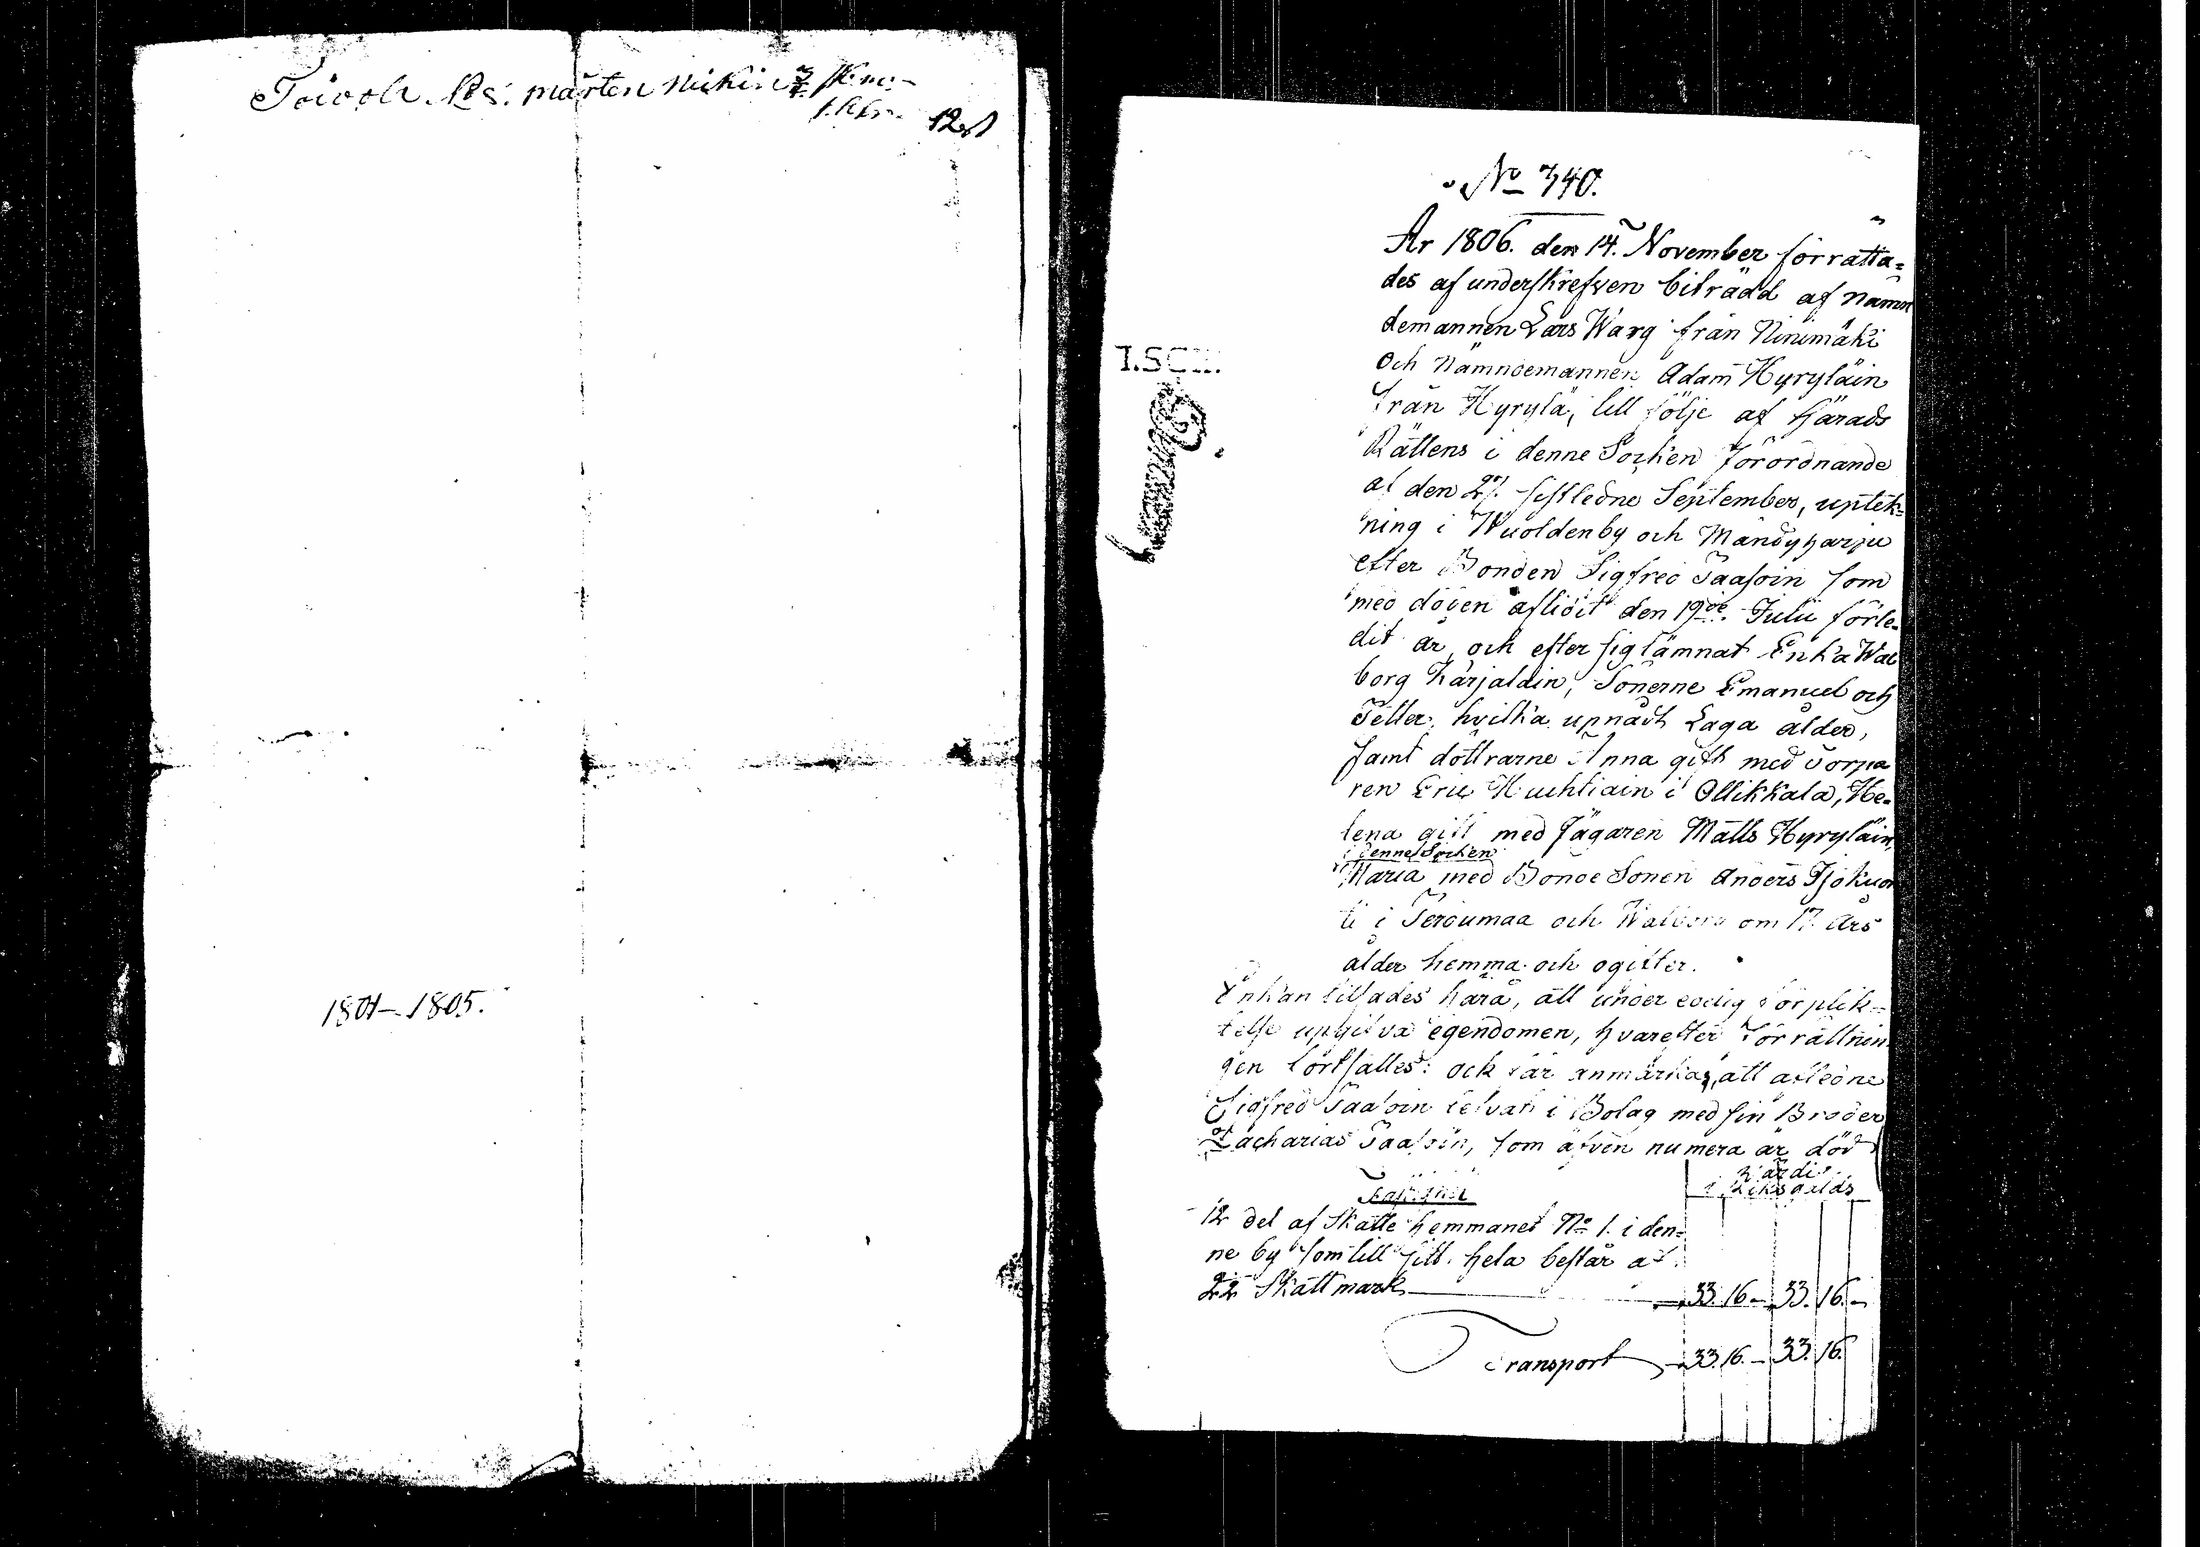 Toivola No 8. mårten Mikin
12 st
1801–1805.
No 340.
År 1806. den 14. November förrätta=
des af underskrefven biträdd af nämn
demannen Lars Warg från Ninimäki
Och Nämndemannen Adam Hyryläin
från Hyrylä, till följe af Härads
Rättens i denne Socken Förordnande
af den 27. sistledne September, uptek=
ning i Wuoldenby och Mändyharju
efter Bonden Sigfred Taasoin som
med döden aflidit den 19de Julii förle=
dit år, och efter sig lämnat Enka Wal
borg Karjalain, Sönerne Emanuel och
Petter, hvilka upnådt Laga ålder,
samt döttrarne Anna gift med Torpa
ren Eric Huuhtiain i Ollikkala, He=
lena gift med Jägaren Matts Hyryläin
i denne Socken
Maria med Bonde Sonen Anders
ti i och Walborg om 17. Års
ålder hemma och ogifter.
Enkan tilsades håra, att under edelig förplik=
telse upgifva egendomen, hvarefter Förrättnin
gen fortsattes: ock här anmärkas, att afledne
Sigfred Taasoin lefvat i Bolag med sin Broder
Zacharias Taasoin, som äfven numera är död
Wärdi
i Riksgälds
Fastighet
12 del af Skatte hemmanet No 1. i den=
ne by som till sitt hela består af
Skattmark 33. 16. – 33. 16. –
Transport 33. 16. – 33. 16.